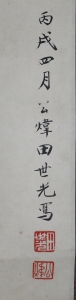 丙戌四月公煒田世光寫